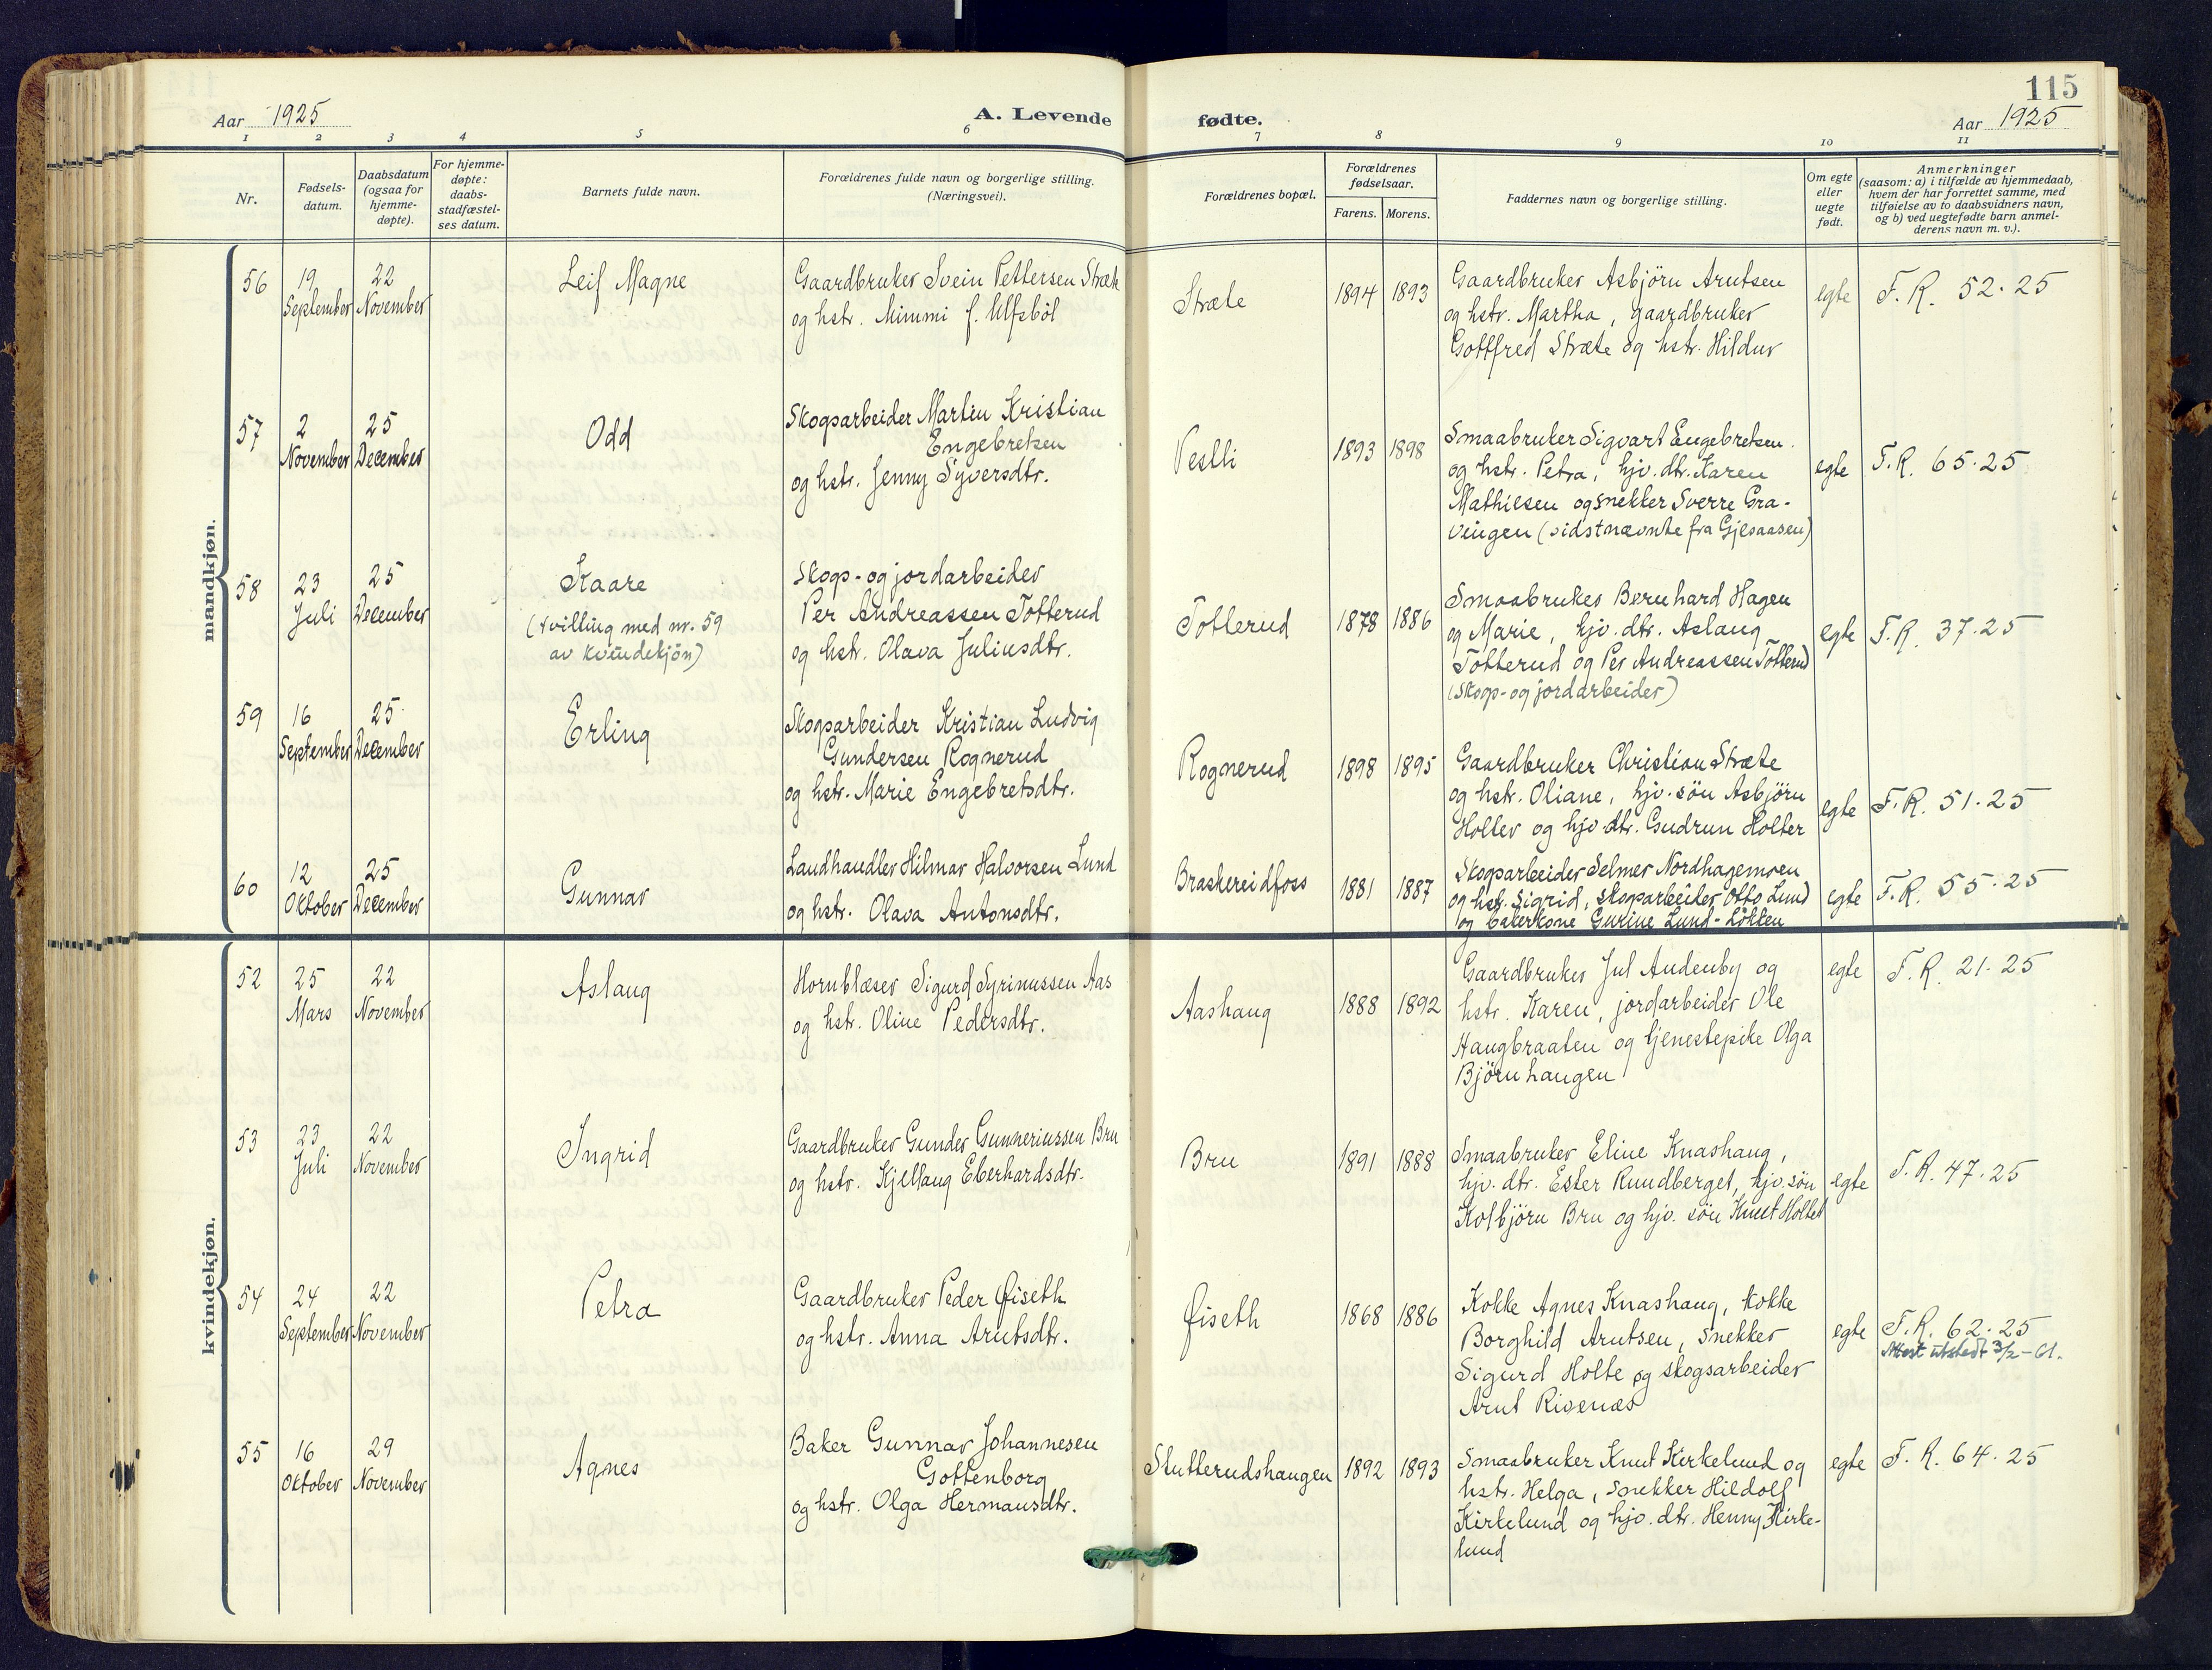 115
Aar 1925
A. Levende
fødte.
Aar 1925
1 2 3 4 5 6 7 8 9 10 11
Nr.
Fødsels-
datum.
Daabsdatum
(ogsaa for
hjemme-
døpte).
For hjemme-
døpte:
daabs-
stadfæstel-
ses datum.
Barnets fulde navn.
Forældrenes fulde navn og borgerlige stilling.
(Næringsvei).
Forældrenes bopæl.
Forældrenes
fødselsaar.
Farens. Morens.
Faddernes navn og borgerlige stilling.
Om egte
eller
uegte
født.
Anmerkninger
(saasom: a) i tilfælde av hjemmedaab,
hvem der har forrettet samme, med
tilføielse av to daabsvidners navn,
og b) ved uegtefødte barn anmel-
derens navn m. v.).
mandkjøn.
56
19
September
22
November
Leif Magne
Gaardbruker Svein Pettersen Stræte
og hstr. Mimmi f. Ulfsböl
Stræte
1894 1893
Gaardbruker Asbjörn Arntsen
og hstr. Martha, gaardbruker
Gottfred Stræte og hstr. Hildur
egte
F. R. 52-25
57
2
November
25
December
Odd
Skogsarbeider Martin Kristian
Engebretsen
og hstr. Jenny Syversdtr.
Veslli
1893 1898
Smaabruker Sigvart Engebretsen
og hstr. Petra, hjv. dtr. Karen
Mathiesen og snekker Sverre Gra-
vingen (sidstnævnte fra Gjesaasen)
egte
F. R. 65-25
58
23
Juli
25
December
Kaare
(tvilling med nr. 59
av kvindekjön)
Skogs- og jordarbeider
Per Andreassen Totterud
og hstr. Olava Juliusdtr.
Totterud
1878 1886
Smaabruker Bernhard Hagen
og Marie, hjv. dtr. Aslaug
Totterud og Per Andreassen Totterud
(skogs- og jordarbeider)
egte
F. R. 37-25
59
16
September
25
December
Erling
Skogsarbeider Kristian Ludvig
Gundersen Rognerud
og hstr. Marie Engebretsdtr.
Rognerud
1898 1895
Gaardbruker Christian Stræte
og hstr. Oliane, hjv. sön Asbjörn
Holter og hjv. dtr. Gudrun Holter
egte
F. R. 51-25
60
12
Oktober
25
December
Gunnar
Landhandler Hilmar Halvorsen Lund
og hstr. Olava Antonsdtr.
Braskereidfoss
1881 1887
Skogsarbeider Selmer Nordhagemoen
og hstr. Sigrid, skogsarbeider Otto Lund
og bakerkone Gurine Lund-Lökken
egte
F. R. 55-25
kvindekjøn.
52
25
Mars
22
November
Aslaug
Hornblæser Sigurd Syrinussen Aas
og hstr. Oline Pedersdtr.
Aashaug
1888 1892
Gaardbruker Jul Audenby og
hstr. Karen, jordarbeider Ole
Haugbraaten og tjenestepike Olga
Björnhaugen
egte
F. R. 21-25
53
23
Juli
22
November
Ingrid
Gaardbruker Gunder Gunneriussen Bru
og hstr. Kjellaug Eberhardsdtr.
Bru
1891 1888
Smaabruker Eline Knashaug,
hjv. dtr. Ester Rundberget, hjv. sön
Kolbjörn Bru og hjv. sön Knut Holtet
egte
F. R. 47-25
54
24
September
22
November
Petra
Gaardbruker Peder Øiseth
og hstr. Anna Arntsdtr.
Øiseth
1868 1886
Kokke Agnes Knashaug, kokke
Borghild Arntsen, snekker
Sigurd Holte og skogsarbeider
Arnt Rivenæs
egte
F. R. 62-25
Attest utstedt 3/2-61.
55
16
Oktober
29
November
Agnes
Baker Gunnar Johannesen
Gottenborg
og hstr. Olga Hermansdtr.
Stutterudshaugen
1892 1893
Smaabruker Knut Kirkelund og
hstr. Helga, snekker Hildolf
Kirkelund og hjv. dtr. Henny Kirke-
lund
egte
F. R. 64-25